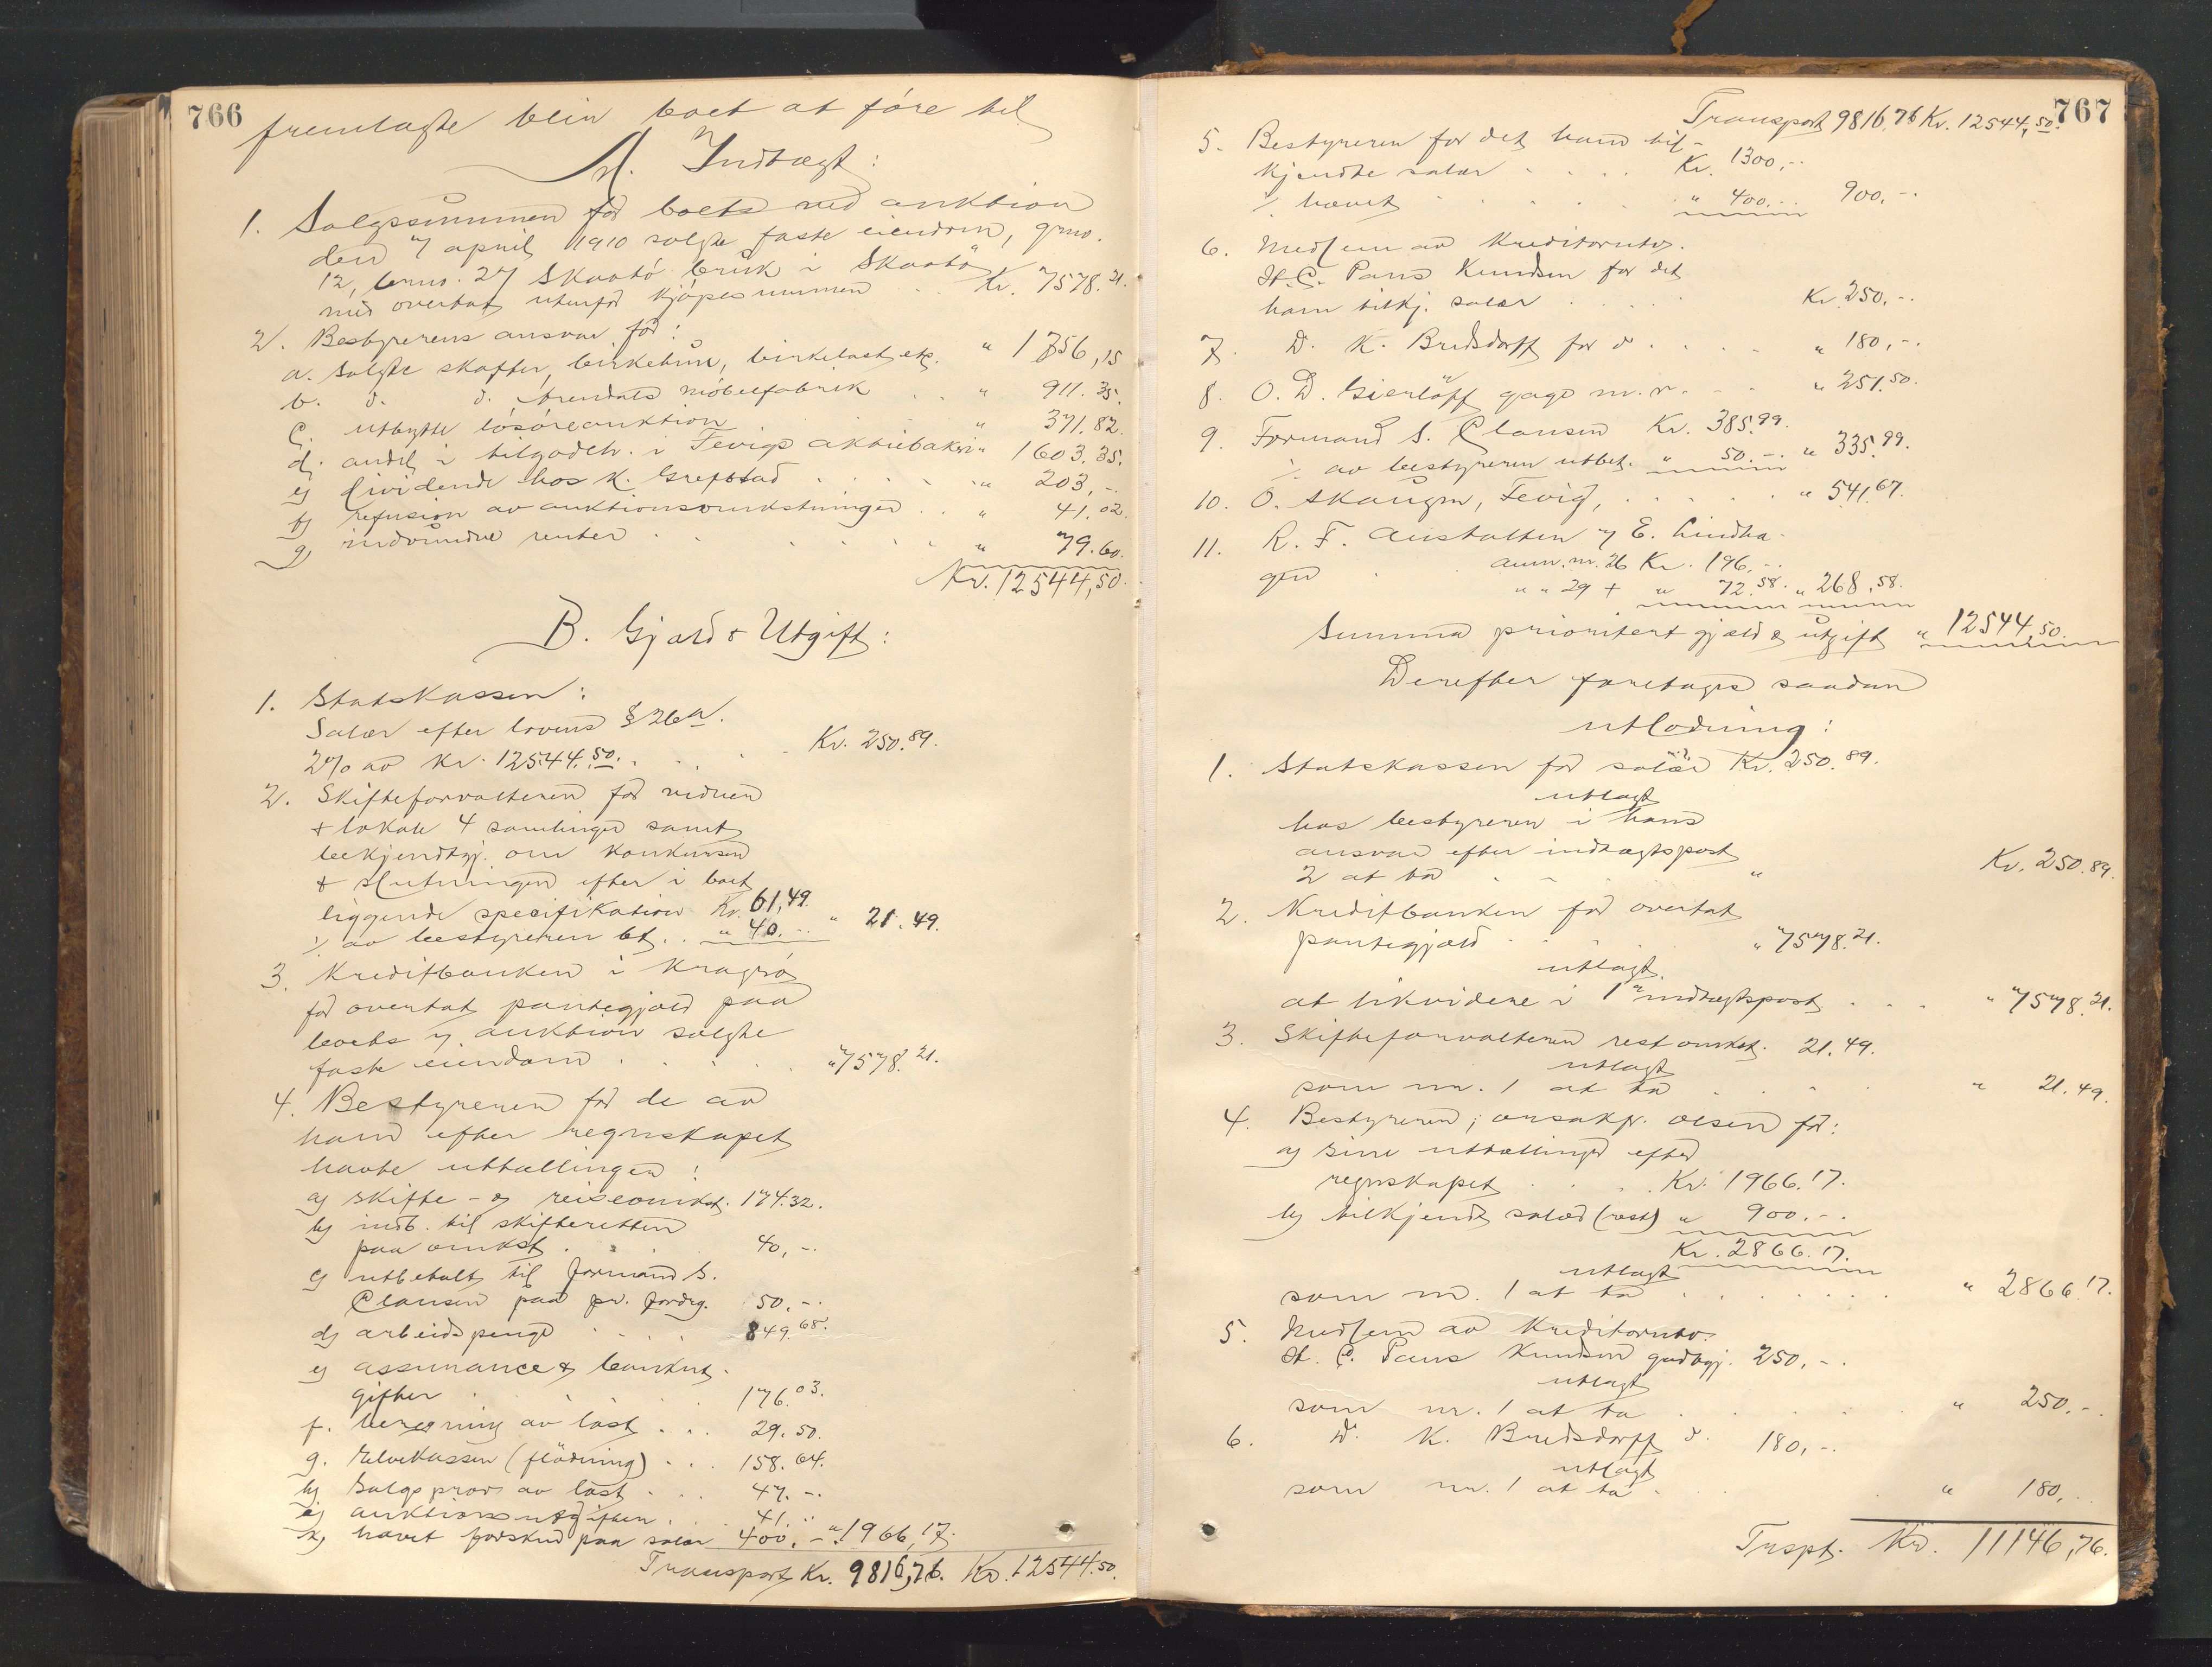 766
fremlagte blir boet at føre til
A. Indtægt:
1. Salgssummen for boets ved auktion
den 7 april 1910 solgte faste eiendom, grno.
12, brno. 27 Skaatø bruk i Skaatø
med overtat utenfor kjøpesummen .. Kr. 7578.21.
2. Bestyrerens ansvar for:
a. Solgte skafter, birkehun, birkelast etc. " 1756,15
b. d. d. Arendals møbelfabrik .. " 911.35.
c. utbytte løsøreauktion " 371.82.
d. andel i tilgodeh. i Fevigs aktiebakeri " 1603.35.
e) dividende hos K. Grefstad " 203,-.
f) refusion av auktionsomkostninger .. " 41.02.
g) indvundne renter " 79.60.
Kr. 12544,50.
B. Gjæld & Utgift:
1. Statskassen:
Salær efter lovens § 26a.
2% av Kr. 12544.50. Kr. 250.89.
2. Skifteforvalteren for vidnen
& lokale 4 samlinger samt
bekjendtgj. om konkursen
& slutningen efter i boet
liggende specifikation Kr. 61,49.
÷ av bestyreren bet. . " 40.- " 21.49.
3. Kreditbanken i Kragerø
for overtat pantegjæld paa
boets v. auktion solgte
faste eiendom " 7578.21.
4. Bestyreren for de av
ham efter regnskapet
havte uttællinger:
a) skifte- og reiseomkst. 174.32.
b) indb. til skifteretten
paa omkst. 40,-.
c) utbetalt til formand S.
Clausen paa pr. fordrg. 50.-.
d) arbeidspenge 849.68.
e) assurance & bankut-
gifter 176.03.
f. beregning av last ... 29.50.
g. Elvekassen (flødning) ... 158.64.
h) Salgsprov. av last ... 47.-.
i) auktionsutgiften . 41.
k) hævet forskud paa salær 400.- " 1966,17.
Transport Kr. 9816,76. Kr. 12544.50.
767
Transport 9816,76 Kr. 12544,50.
5. Bestyreren for det ham til-
kjendte salær .... Kr. 1300,-.
÷ hævet " 400.- 900,-.
6. Medlem av Kreditorutv.
H. C. Paus Knudsen for det
ham tilkj. salær Kr. 250,-.
7. D. K. Bredsdorff for d. .... " 180,-.
8. O. D. Gierløff gage m. v. " 251.50.
9. Formand S. Clausen Kr. 385.99.
÷ av bestyreren utbet. " 50.-. " 335.99.
10. O. Skaugen, Fevig, " 541.67.
11. R. F. Anstalten v/ E. Lindha-
gen anm. nr. 26 Kr. 196,-.
" " 29 + " 72.58. " 268,58.
Summa prioritert gjæld & utgift " 12544,50.
Derefter foretages saadan
utlodning:
1. Statskassen for salær Kr. 250.89.
utlagt
hos bestyreren i hans
ansvar efter indtægtspost
2 at ta " Kr. 250.89.
2. Kreditbanken for overtat
pantegjæld " 7578.21.
utlagt.
at likvidere i 1ste indtægtspost ... " 7578.21.
3. Skifteforvalteren rest omkst. 21.49.
utlagt
som nr. 1 at ta " 21.49.
4. Bestyreren, orsakf. Olsen for:
a) sine uttællinger efter
regnskapet Kr. 1966.17.
b) tilkjendt salær (rest) " 900.-.
Kr. 2866.17.
utlagt
som nr. 1 at ta " 2866.17.
5. Medlem av Kreditorutv.
H. C. Paus Knudsen godtgj. 250,-.
utlagt
som nr. 1 at ta " 250.-.
6. D. K. Bredsdorff d. 180,-.
utlagt
som nr. 1 at ta " 180,-.
Trspt. Kr. 11146,76.